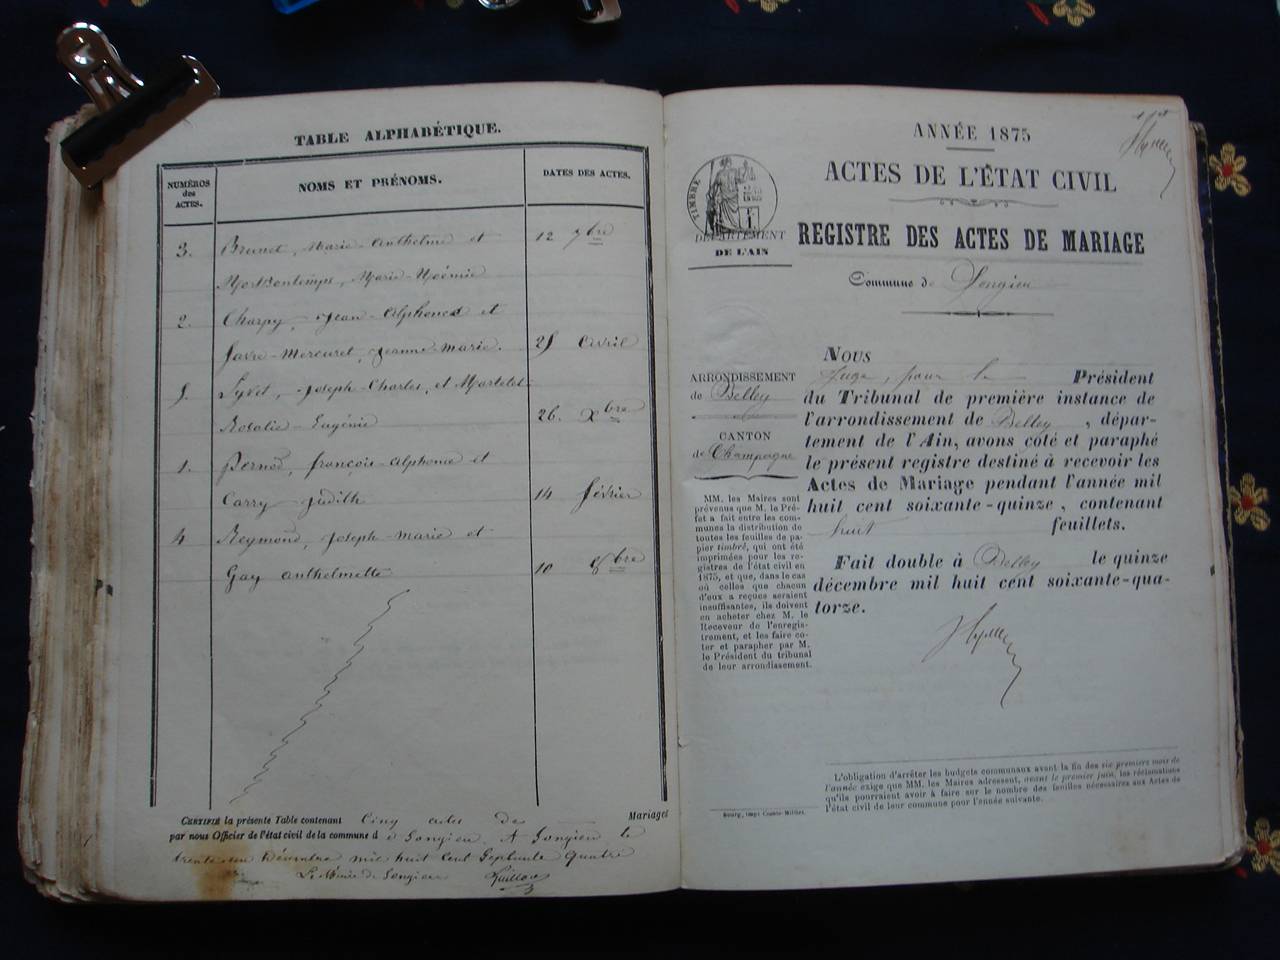 TABLE ALPHABÉTIQUE.
NUMÉROS des ACTES.
NOMS ET PRÉNOMS.
DATES DES ACTES.
3. Brunet, Marie-Anthelme et 12 7bre
Montbontemps, Marie-Noémie
2. Charpy, Jean-Alphonse et
Favre-Mercuret, Jeanne-Marie. 25 avril
5. Lyvet, Joseph-Charles, et Martelet
Rosalie-Eugénie 26. Xbre
1. Pernod, françois-alphonse et
Carry Judith 14 février
4 Reymond, Joseph-Marie et
Gay anthelmette 10 8bre
CERTIFIÉ la présente Table contenant Cinq actes de Mariages
par nous Officier de l'état civil de la commune d e Songieu. A Songieu le
trente un Décembre mil huit cent Septante quatre
Le Maire de Songieu
ANNÉE 1875
ACTES DE L'ÉTAT CIVIL
TIMBRE
DÉPARTEMENT
DE L'AIN
REGISTRE DES ACTES DE MARIAGE
Commune de Songieu
ARRONDISSEMENT
de Belley
CANTON
de Champagne
MM. les Maires sont
prévenus que M. le Pré-
fet a fait entre les com-
munes la distribution de
toutes les feuilles de pa-
pier timbré, qui ont été
imprimées pour les re-
gistres de l'état civil en
1875, et que, dans le cas
où celles que chacun
d'eux a reçues seraient
insuffisantes, ils doivent
en acheter chez M. le
Receveur de l'enregis-
trement, et les faire co-
ter et parapher par M.
le Président du tribunal
de leur arrondissement.
NOUS
Juge, pour le Président
du Tribunal de première instance de
l'arrondissement de Belley, dépar-
tement de l'Ain, avons coté et paraphé
le présent registre destiné à recevoir les
Actes de Mariage pendant l'année mil
huit cent soixante-quinze, contenant
huit feuillets.
Fait double à Belley le quinze
décembre mil huit cent soixante-qua-
torze.
L'obligation d'arrêter les budgets communaux avant la fin des six premiers mois de
l'année exige que MM. les Maires adressent, avant le premier juin, les réclamations
qu'ils pourraient avoir à faire sur le nombre des feuilles nécessaires aux Actes de
l'état civil de leur commune pour l'année suivante.
Bourg, impr. Comte-Milliet.